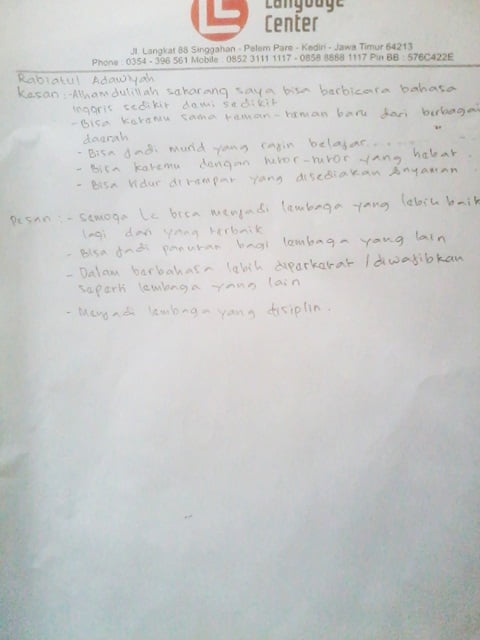 LC
Language
Center
Jl. Langkat 88 Singgahan - Pelem Pare - Kediri - Jawa Timur 64213
Phone : 0354 - 396 561 Mobile : 0852 3111 1117 - 0858 8888 1117 Pin BB : 576C422E
Rabiatul Adawiyah
Kesan :- Alhamdulillah sekarang saya bisa berbicara bahasa
inggris sedikit demi sedikit
- Bisa ketemu sama teman-teman baru dari berbagai
daerah
- Bisa jadi murid yang rajin belajar........
- Bisa ketemu dengan tutor-tutor yang hebat.
- Bisa tidur di tempat yang disediakan & nyaman.
Pesan :- Semoga Lc bisa menjadi lembaga yang lebih baik
lagi dari yang terbaik
- Bisa jadi panutan bagi lembaga yang lain
- Dalam berbahasa lebih diperketat / diwajibkan
seperti lembaga yang lain
- Menjadi lembaga yang disiplin.